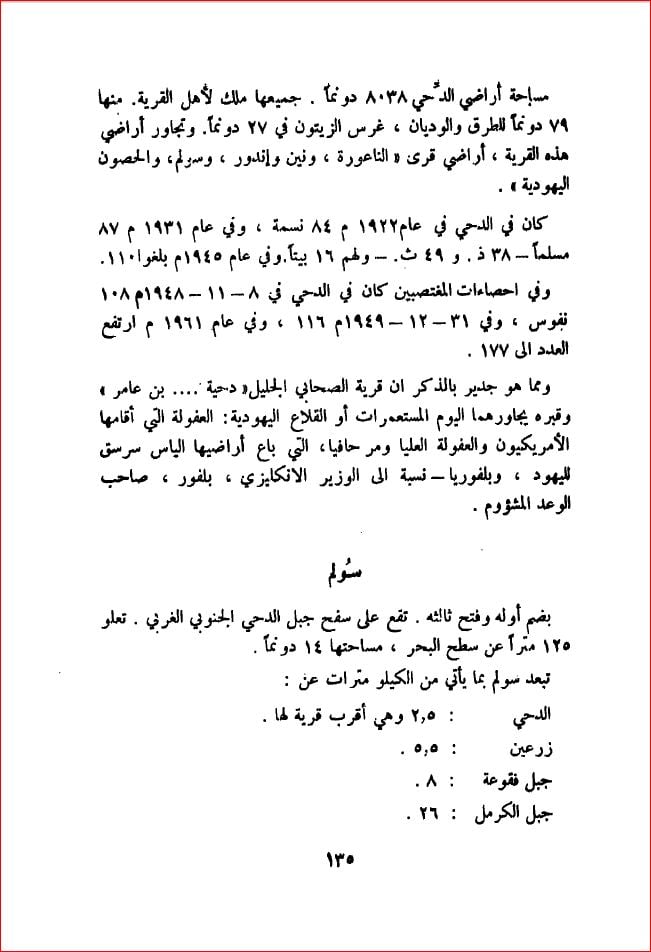 مساحة أراضي الدّحي ٨٠٣٨ دونماً . جميعها ملك لأهل القرية. منها
٧٩ دونماً للطرق والوديان ، غرس الزيتون في ٢٧ دونماً. وتجاور أراضي
هذه القرية ، أراضي قرى « الناعورة ، ونين وإندور ، وسولم، والحصون
اليهودية » .
كان في الدحي في عام١٩٢٢ م ٨٤ نسمة ، وفي عام ١٩٣١ م ٨٧
مسلماً – ٣٨ ذ. و ٤٩ ث. – ولهم ١٦ بيتاً.وفي عام ١٩٤٥م بلغوا١١٠.
وفي احصاءات المغتصبين كان في الدحي في ٨ – ١١ – ١٩٤٨م ١٠٨
نفوس ، وفي ٣١ – ١٢ – ١٩٤٩م ١١٦ ، وفي عام ١٩٦١ م ارتفع
العدد الى ١٧٧ .
ومما هو جدير بالذكر ان قرية الصحابي الجليل« دحية .... بن عامر »
وقبره يجاورهما اليوم المستعمرات أو القلاع اليهودية: العفولة التي أقامها
الأمريكيون والعفولة العليا ومرحافيا، التي باع أراضيها الياس سرسق
لليهود ، وبلفوريا – نسبة الى الوزير الانكليزي ، بلفور ، صاحب
الوعد المشؤوم .
سُولم
بضم أوله وفتح ثالثه . تقع على سفح جبل الدحي الجنوبي الغربي . تعلو
١٢٥ متراً عن سطح البحر ، مساحتها ١٤ دونماً .
تبعد سولم بما يأتي من الكيلو مترات عن :
الدحي : ٢,٥ وهي أقرب قرية لها .
زرعين : ٥,٥ .
جبل فقوعة : ٨ .
جبل الكرمل : ٢٦ .
١٣٥